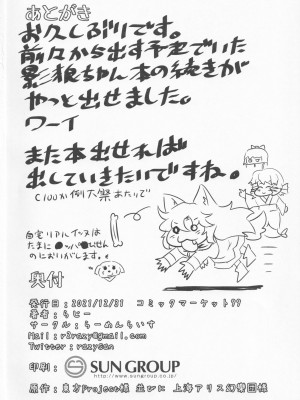 あとがき
お久しぶりです。
前々から出す予定でいた
影狼ちゃん本の続きが
やっと出せました。
ワーイ
また本出せれば
出していきたいですね。
C100か例大祭あたりで
自宅リアルイッヌは
たまに●ッパ●びせん
のにおいがします。
奥付
発行日:2021/12/31 コミックマーケット99
著者:らじー
サークル:らーめんらいす
Mail:r2razy@gmail.com
Twitter:razysan
印刷:SUN GROUP
http://www.sungroup.co.jp/
原作:東方Project様 並びに 上海アリス幻樂団様